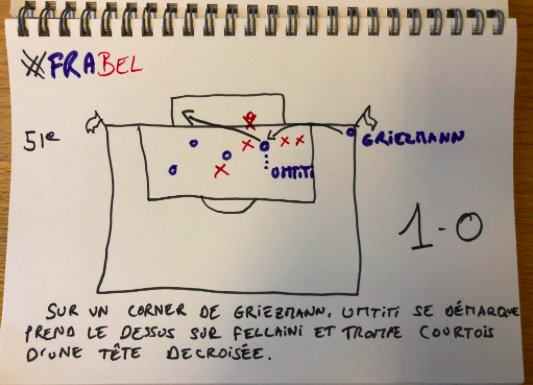 #FRABEL
51e
GRIEZMANN
UMTITI
1-0
SUR UN CORNER DE GRIEZMANN, UMTITI SE DÉMARQUE
PREND LE DESSUS SUR FELLAINI ET TROMPE COURTOIS
D'UNE TÊTE DECROISÉE.